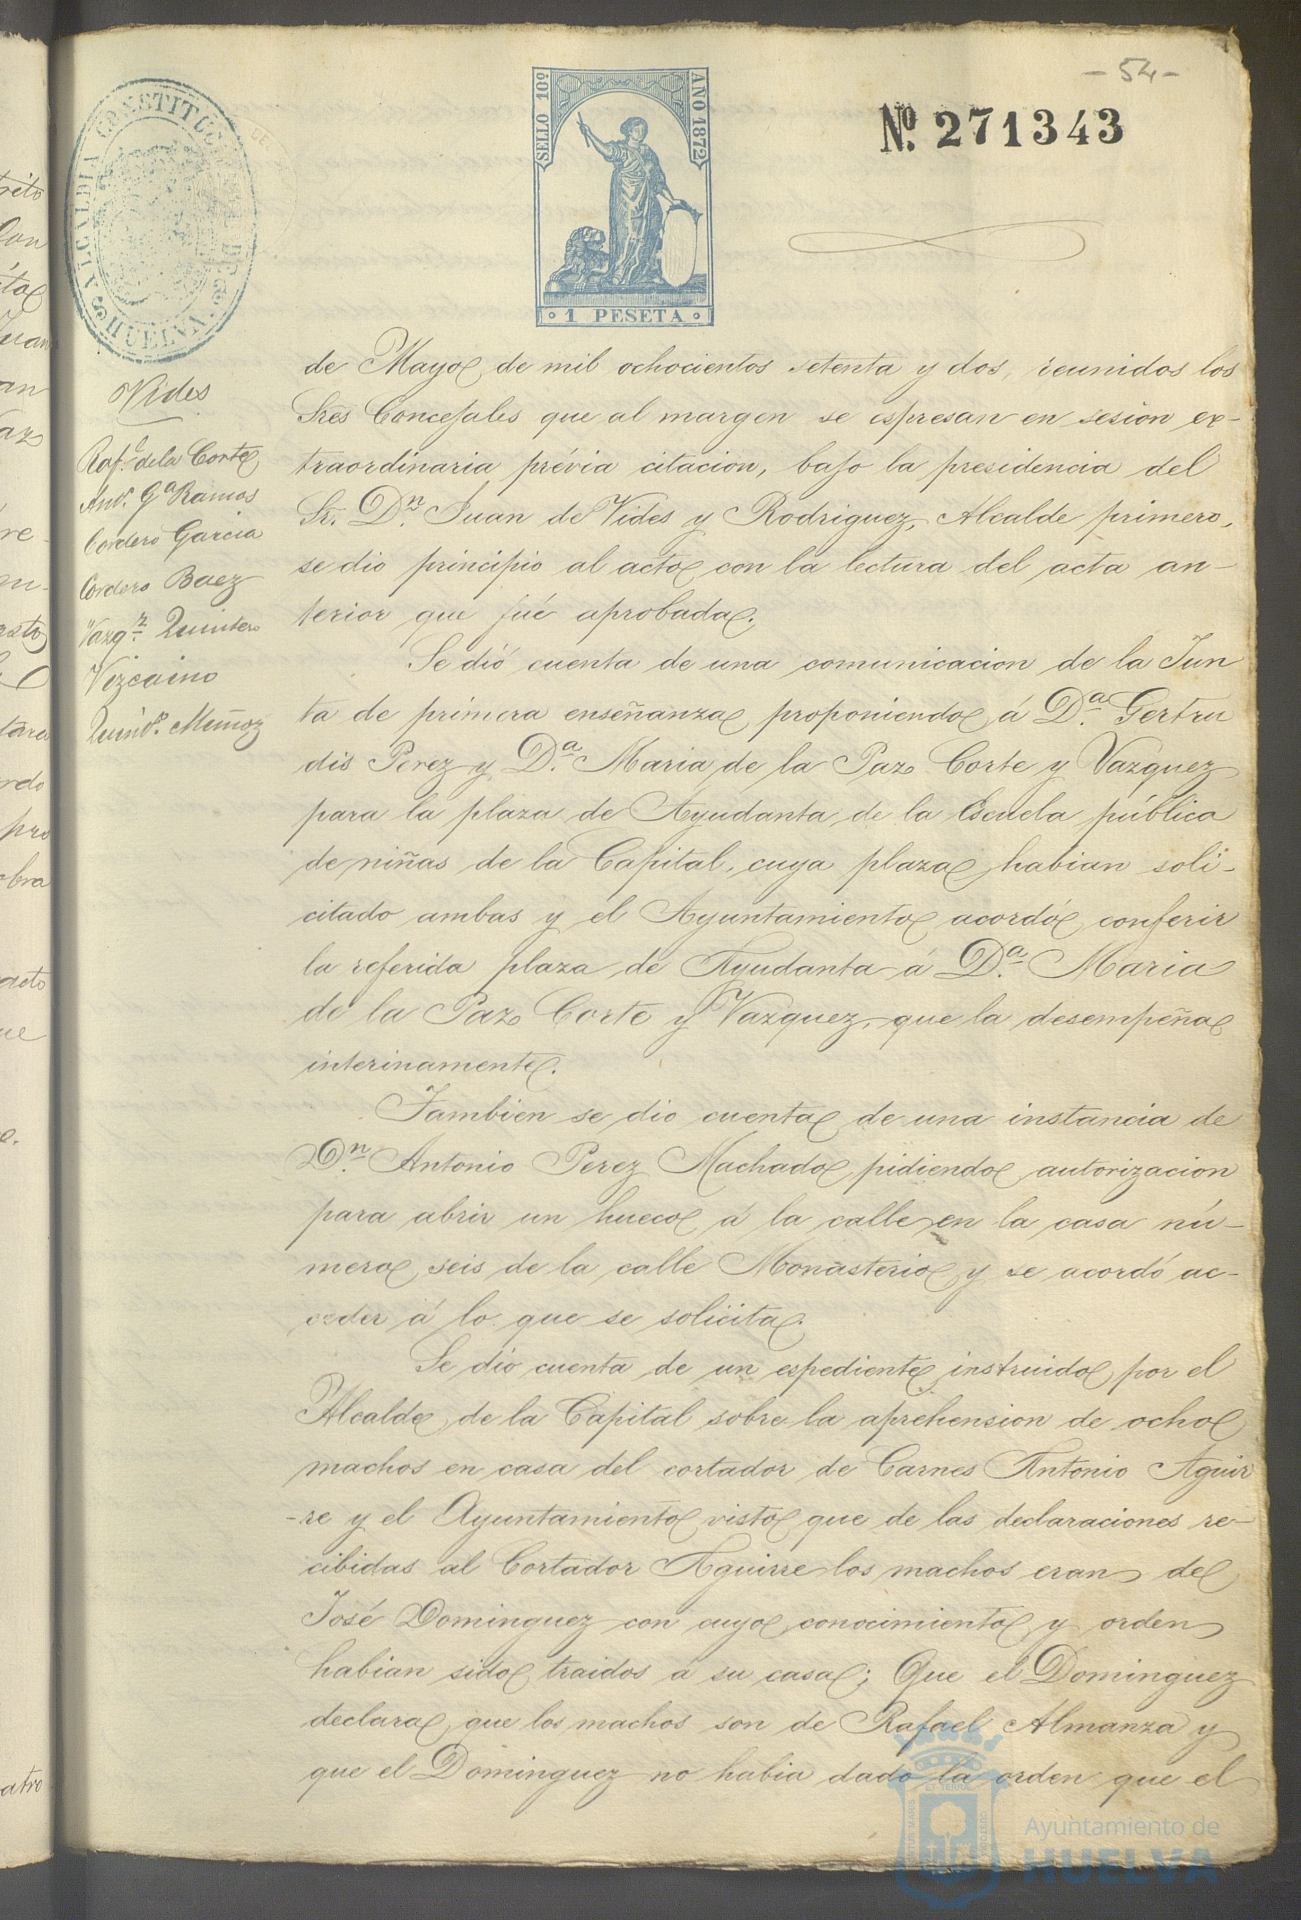 - 54 -
Nº. 271343
SELLO 10º
AÑO 1872
1 PESETA
ALCALDIA CONSTITUCIONAL DE
HUELVA
Vides
Raf.l de la Corte
And.s G.a Ramos
Cordero Garcia
Cordero Baez
Vazq.z Quintero
Vizcaino
Quint.o Muñoz
de Mayo de mil ochocientos setenta y dos, reunidos los
Sres Concejales que al margen se espresan en sesion ex-
traordinaria prévia citacion, bajo la presidencia del
Sr. D.n Juan de Vides y Rodriguez, Alcalde primero,
se dio principio al acto con la lectura del acta an-
terior que fué aprobada.
Se dió cuenta de una comunicacion de la Jun
ta de primera enseñanza proponiendo á D.a Gertru
dis Perez y D.a Maria de la Paz Corte y Vazquez
para la plaza de Ayudanta de la Escuela pública
de niñas de la Capital, cuya plaza habian soli-
citado ambas y el Ayuntamiento acordó conferir
la referida plaza de Ayudanta á D.a Maria
de la Paz Corte y Vazquez, que la desempeña
interinamente.
Tambien se dio cuenta de una instancia de
D.n Antonio Perez Machado pidiendo autorizacion
para abrir un hueco á la calle en la casa nú-
mero seis de la calle Monasterio y se acordó ac-
ceder á lo que se solicita.
Se dió cuenta de un espediente instruido por el
Alcalde de la Capital sobre la aprehension de ocho
machos en casa del cortador de Carnes Antonio Aguir
-re y el Ayuntamiento visto que de las declaraciones re-
cibidas al Cortador Aguirre los machos eran de
José Dominguez con cuyo conocimiento y orden
habian sido traidos a su casa; Que el Dominguez
declara que los machos son de Rafael Almanza y
que el Dominguez no habia dado la orden que el
Ayuntamiento de
HUELVA